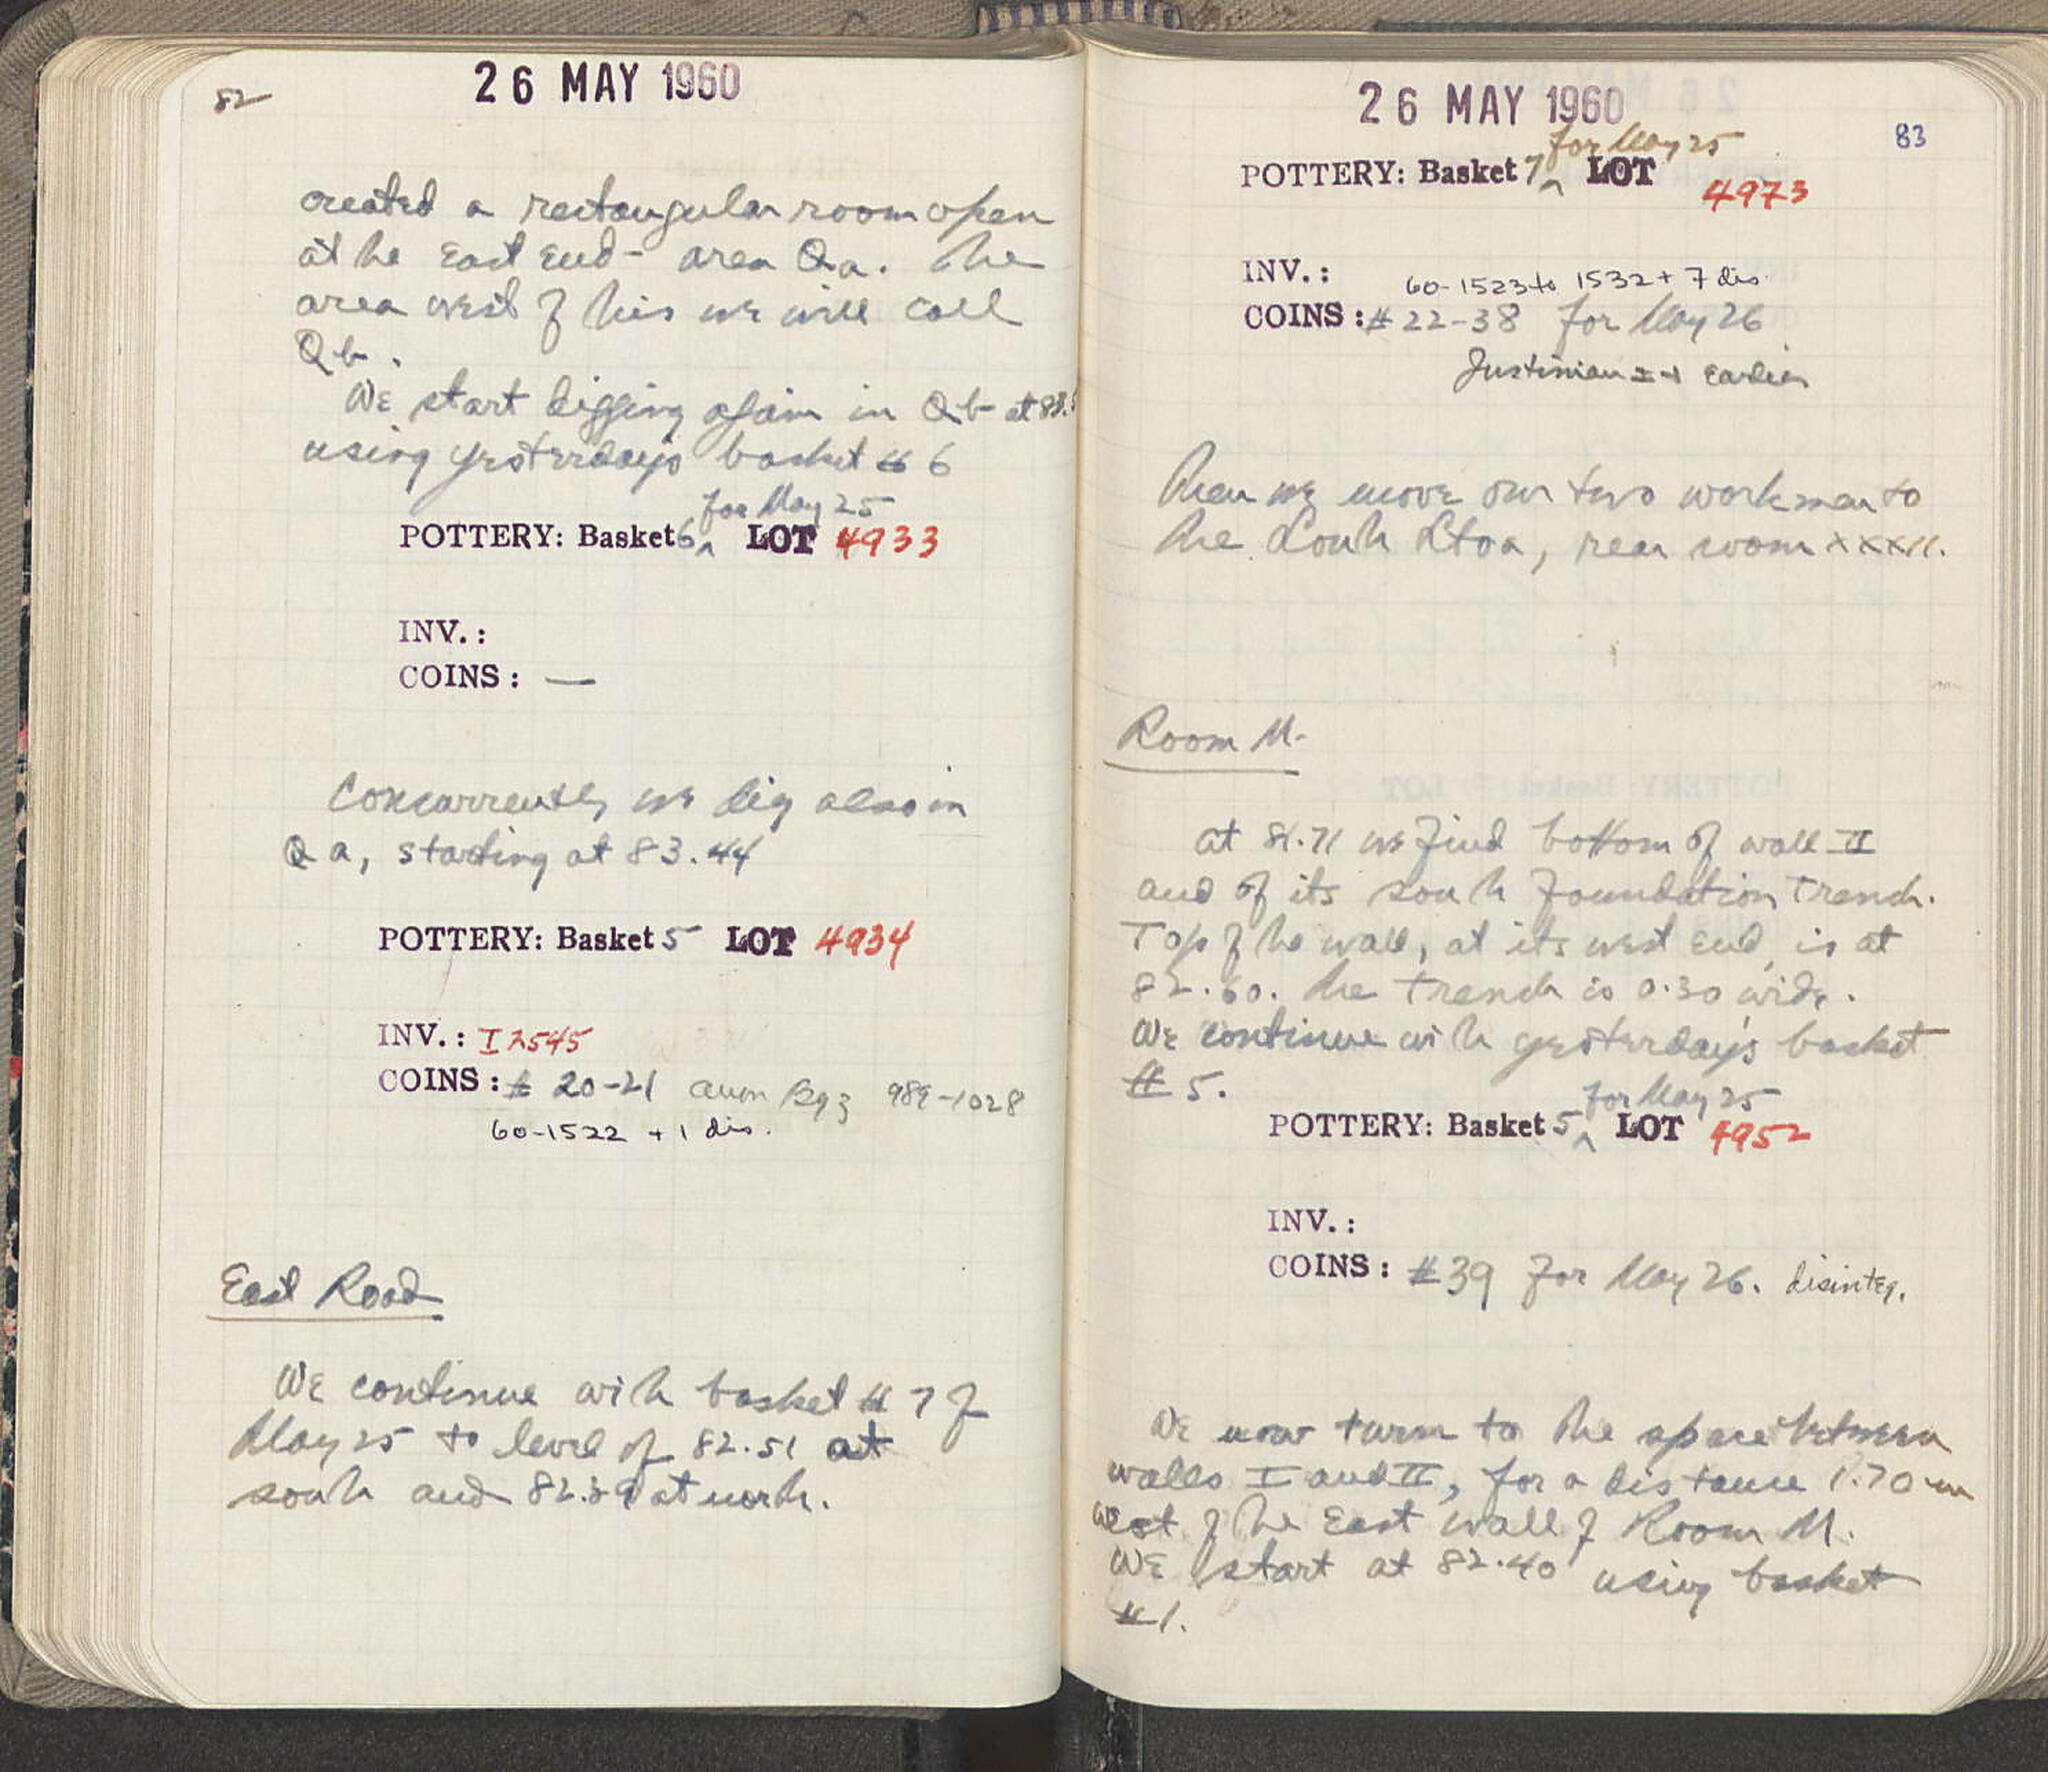 82
26 MAY 1960
created a rectangular room open
at the East End - area Qa. The
area west of this we will call
Qb.
We start digging again in Qb at 83.5
using yesterday's basket # 6
for May 25
POTTERY: Basket 6 ^ LOT 4933
INV.:
COINS: —
Concurrently we dig also in
Qa, starting at 83.44
POTTERY: Basket 5 LOT 4934
INV.: I 2545
COINS: # 20-21 anon Byz 989-1028
60-1522 + 1 dis.
East Road
We continue with basket # 7 of
May 25 to level of 82.51 at
south and 82.39 at north.
26 MAY 1960
83
for May 25
POTTERY: Basket 7 ^ LOT 4973
INV.: 60-1523 to 1532 + 7 dis.
COINS: # 22-38 for May 26
Justinian I + Earlier
Then we move our two workmen to
the South Stoa, rear room XXXII.
Room M.
at 81.71 we find bottom of wall II
and of its south foundation trench.
Top of the wall, at its west end, is at
82.60. The trench is 0.30 wide.
We continue with yesterday's basket
# 5.
for May 25
POTTERY: Basket 5 ^ LOT 4952
INV.:
COINS: #39 for May 26. disinteg.
We now turn to the space between
walls I and II, for a distance 1.70 m
west of the East wall of Room M.
We start at 82.40 using basket
# 1.